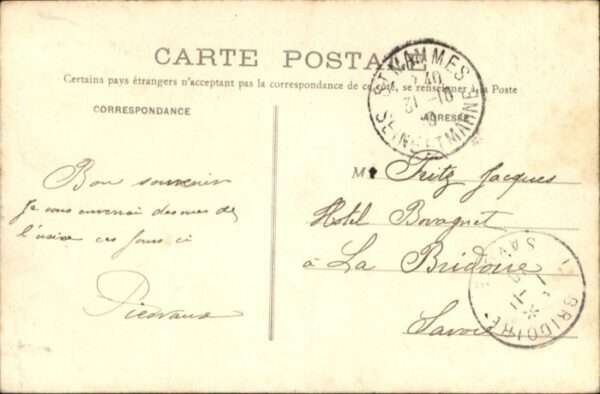 CARTE POSTALE
Certains pays étrangers n'acceptant pas la correspondance de ce côté, se renseigner à la Poste
CORRESPONDANCE
ADRESSE
ST MAMMES
SEINE ET MARNE
Bon souvenir
Je vous enverrai des vues de
l'usine ces jours ci
M Fritz Jacques
Hotel Bovagnet
à La Bridoire
Savoie
LA BRIDOIRE
SAVOIE